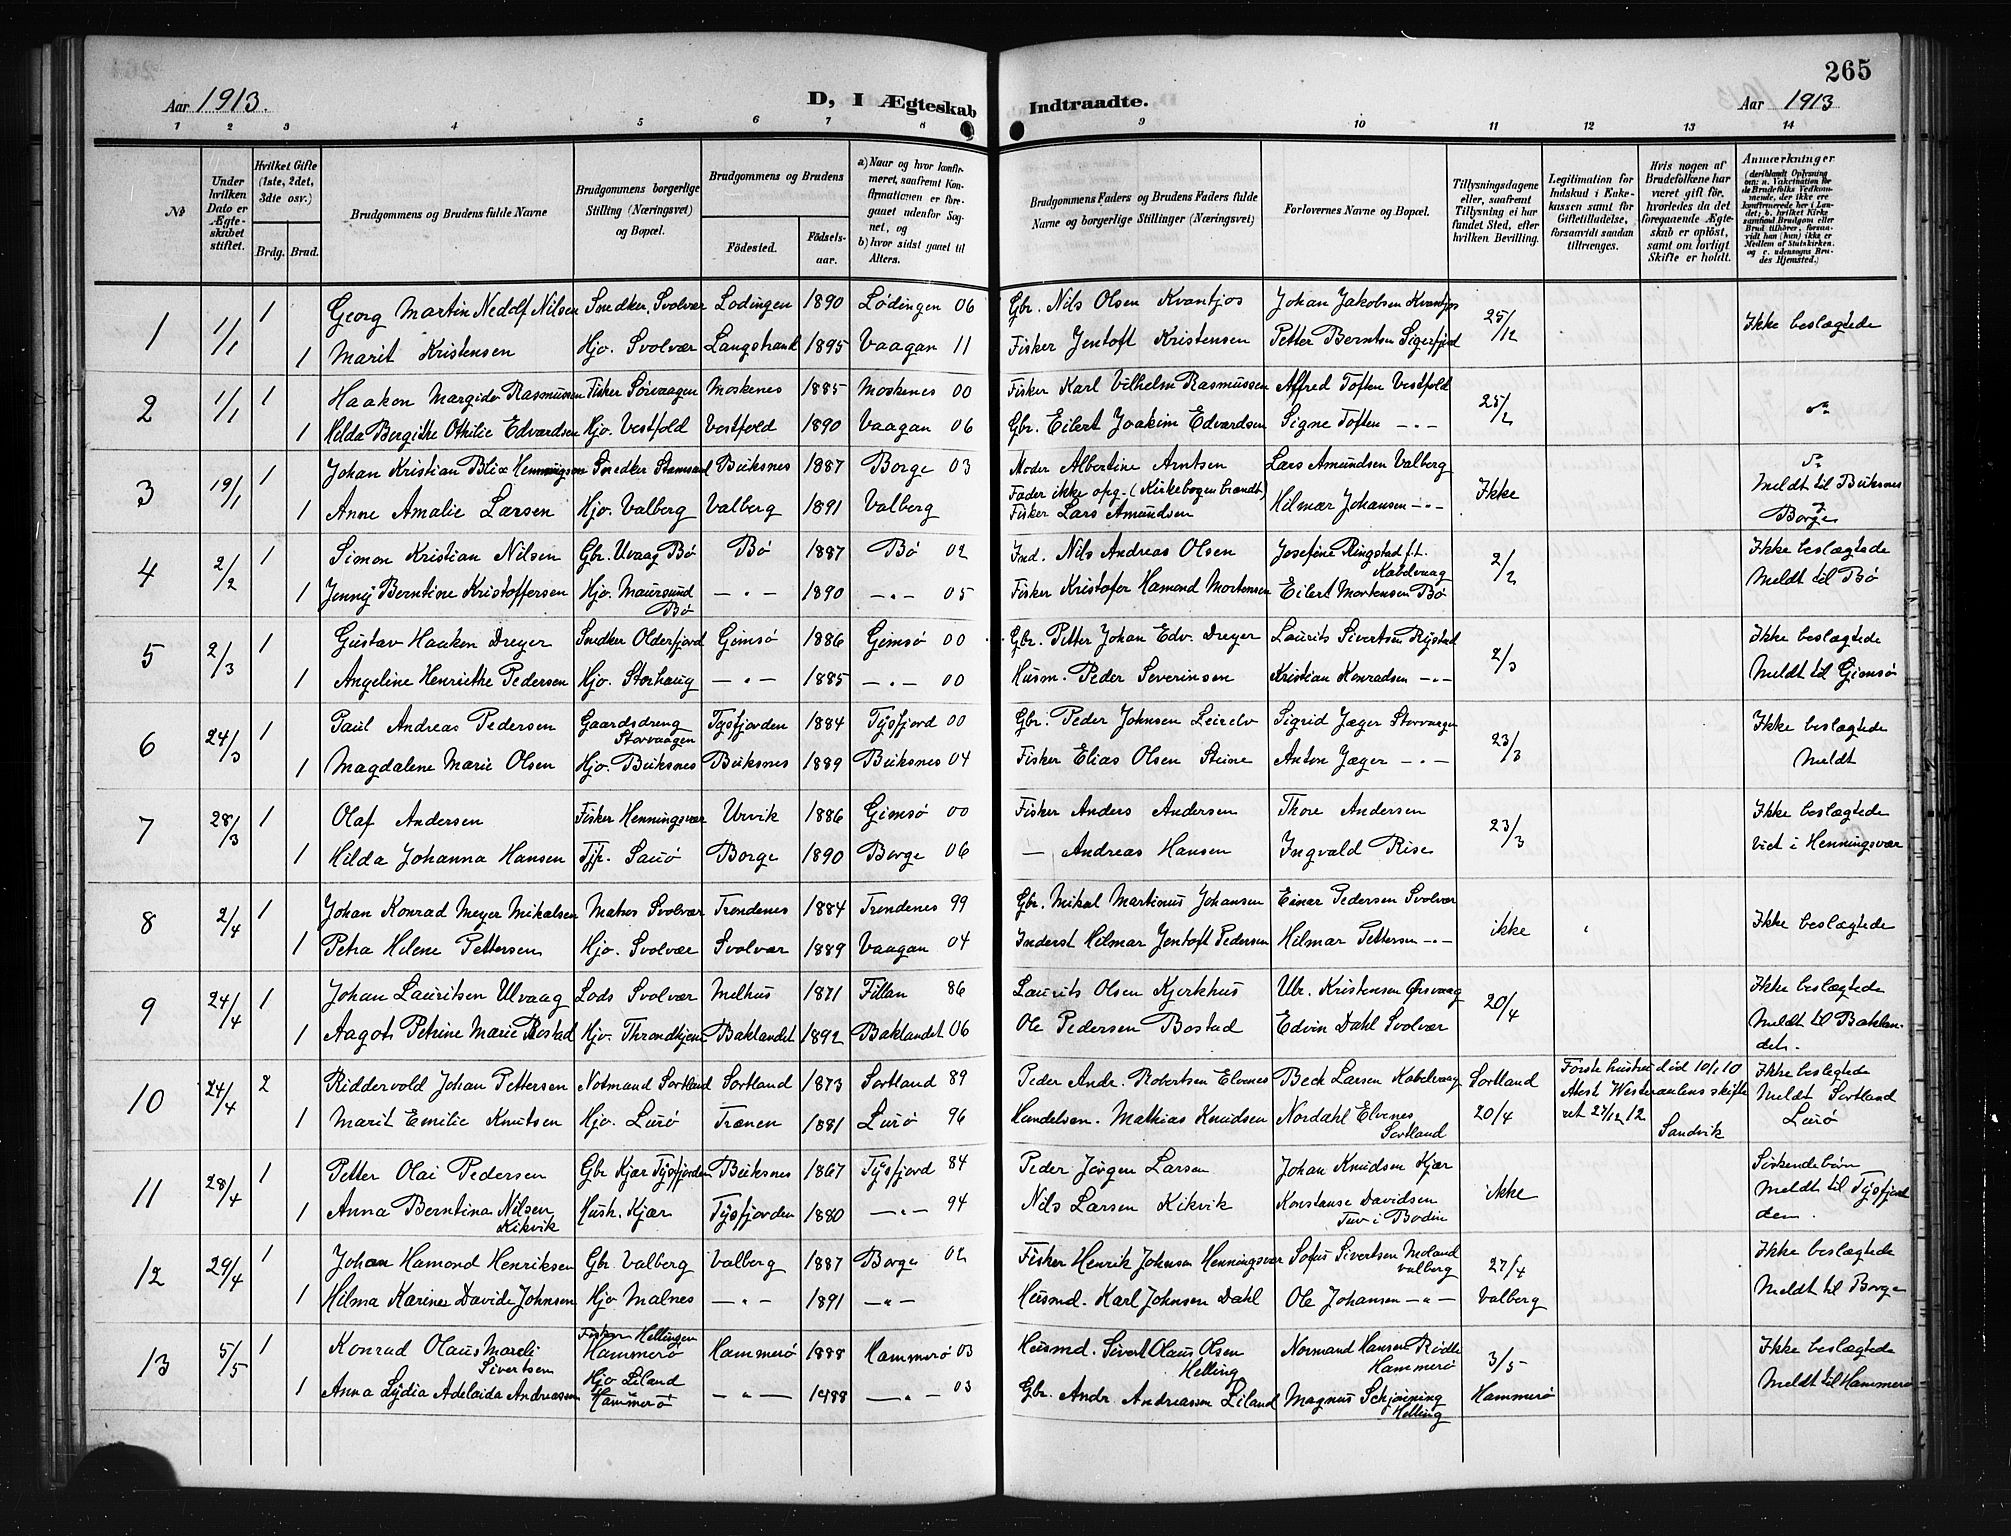 265
Aar 1913.
D, I Ægteskab Indtraadte.
Aar 1913
1 2 3 4 5 6 7 8 9 10 11 12 13 14
№
Under hvilken Dato er Ægteskabet stiftet.
Hvilket Gifte (1ste, 2det, 3die osv.)
Brdg. Brud.
Brudgommens og Brudens fulde Navne
Brudgommens borgerlige Stilling (Næringsvei) og Bopæl.
Brudgommens og Brudens
Födested. Födselsaar.
a) Naar og hvor konfirmeret, saafremt Konfirmationen er foregaaet udenfor Sognet, og b) hvor sidst gaaet til Alters.
Brudgommens Faders og Brudens Faders fulde Navne og borgerlige Stillinger (Næringsvei)
Forlovernes Navne og Bopæl.
Tillysningsdagene eller, saafremt Tillysning ei har fundet Sted, efter hvilken Bevilling.
Legitimation for Indskud i Enkekassen samt for Giftetilladelse, forsaavidt saadan tiltrænges.
Hvis nogen af Brudefolkene har været gift för, hvorledes da det foregaaende Ægteskab er oplöst, samt om lovligt Skifte er holdt.
Anmærkninger (deriblandt Oplysning om: a. Vakcination for de Brudefolks Vedkommende, der ikke ere konfirmerede her i Landet; b. hvilket Kirkesamfund Brudgom eller Brud tilhörer, forsaavidt han (hun) ikke er Medlem af Statskirken. og c. udensogns Brudes Hjemsted.)
1 1/1 1 Georg Martin Nedolf Nilsen Snedker Svolvær Lodingen 1890 Lödingen 06 Gbr. Nils Olsen Kvantjos Johan Jakobsen Kvantjos 25/12 Ikke beslægtede
1 Marit Kristensen Hjo. Svolvær Langstrand 1895 Vaagan 11 Fisker Jentoft Kristensen Petter Berntsen Sigerfjord
2 1/1 1 Haakon Margido Rasmussen Fisker Sörvaagen Moskenes 1885 Moskenes 00 Fisker Karl Vilhelm Rasmussen Alfred Toften Vestfold 25/2
1 Hilda Bergithe Othilie Edvardsen Hjo. Vestfold Vestfold 1890 Vaagan 06 Gbr. Eilert Joakim Edvardsen Signe Toften - " -
3 19/1 1 Johan Kristian Blix Henningsen Snedker Stamsund Buksnes 1887 Borge 03 Moder Albertine Arntsen Lars Amundsen Valberg Ikke
Fader ikke opg. (Kirkebogen brændt)
Meldt til Buksnes
1 Anne Amalie Larsen Hjo. Valberg Valberg 1891 Valberg Fisker Lars Amundsen Hilmar Johansen - " - Borge
4 2/2 1 Simon Kristian Nilsen Gbr. Uvaag Bø Bø 1887 Bø 02 Ind. Nils Andreas Olsen Josefine Ringstad f.t. Kabelvaag 2/2 Ikke beslægtede
1 Jenny Berntine Kristoffersen Hjo. Maursund Bø - " - 1890 - " - 05 Fisker Kristofer Hamond Mortensen Eilert Mortensen Bø Meldt til Bø
5 2/3 1 Gustav Haakon Dreyer Snedker Olderfjord Gimsø 1886 Gimsø 00 Gbr. Petter Johan Edv. Dreyer Laurits Sivertsen Rystad 2/3 Ikke beslægtede
1 Angeline Henriette Pedersen Hjo. Storhaug - " - 1885 - " - 00 Husm. Peder Severinsen Kristian Konradsen - " - Meldt til Gimsø
6 24/3 1 Paul Andreas Pedersen Gaardsdreng Storvaagen Tysfjorden 1884 Tysfjord 00 Gbr. Peder Johnsen Leirelv Sigrid Jæger Storvaagen 23/3 Ikke beslægtede
1 Magdalene Marie Olsen Hjo. Buksnes Buksnes 1889 Buksnes 04 Fisker Elias Olsen Steine Anton Jæger - " - Meldt
7 28/3 1 Olaf Andersen Fisker Henningsvær Urvik 1886 Gimsø 00 Fisker Anders Andersen Thore Andersen 23/3 Ikke beslægtede
1 Hilda Johanna Hansen Tjp. Saurø Borge 1890 Borge 06 — Andreas Hansen Ingvald Rise Viet i Henningsvær
8 2/4 1 Johan Konrad Meyer Mikalsen Matros Svolvær Trondenes 1884 Trondenes 99 Gbr. Mikal Martinus Johansen Einar Pedersen Svolvær ikke Ikke beslægtede
1 Petra Helene Pettersen Hjo. Svolvær Svolvær 1889 Vaagan 04 Inderst Hilmar Jentoft Pedersen Hilmar Pettersen - " -
9 24/4 1 Johan Lauritsen Ulvaag Lods Svolvær Melhus 1871 Fillan 86 Laurits Olsen Kjerkhus Ulr. Kristensen Ørsvaag 20/4 Ikke beslægtede
1 Aagot Petrine Marie Bostad Hjo. Throndhjem Baklandet 1892 Baklandet 06 Ole Pedersen Bostad Edvin Dahl Svolvær Meldt til Baklandet.
10 24/4 2 Riddervold Johan Pettersen Notmand Sortland Sortland 1873 Sortland 89 Peder Andr. Robertsen Elvenes Beck Larsen Kabelvaag Sortland Förste hustru död 10/1 10 Ikke beslegtede
Atest Westeraalens skifteret 27/12 12 Sandvik
1 Marit Emilie Knutsen Hjo. Lurø Trænen 1881 Lurø 96 Handelsm. Mathias Knudsen Nordahl Elvenes Sortland 20/4 Meldt Sortland Lurø
11 28/4 1 Petter Olai Pedersen Gbr Kjær Tysfjorden Buksnes 1867 Tysfjord 84 Peder Jörgen Larsen Johan Knudsen Kjær ikke Söskendebörn
1 Anna Berntina Nilsen Kikvik Hush. Kjær Tysfjorden 1880 - " - 94 Nils Larsen Kikvik Konstanse Davidsen Tuv i Bodin Meldt til Tysfjorden.
12 29/4 1 Johan Hamond Henriksen Gbr Valberg Valberg 1887 Borge 02 Fisker Henrik Johnsen Henningsvær Sofus Sivertsen Meland Valberg 27/4 Ikke beslægtede
1 Hilma Karine Davide Johnsen Hjo Malnes - " - 1891 - " - Husmd. Karl Johnsen Dahl Ole Johansen - " - Valberg Meldt til Borge
13 5/5 1 Konrad Olaus Mareli Sivertsen Fisker Hellingen Hammerø Hammerø 1888 Hammerø 03 Husmd. Sivert Olaus Olsen Helling Normand Hansen Hammerø 3/5 Ikke beslægtede
1 Anna Lydia Adelaida Andreassen Hjo Liland Hammerø - " - 1888 - " - 03 Gbr. Andr Andreassen Liland Magnus Schjönning Helling Hammerø Meldt til Hammerø